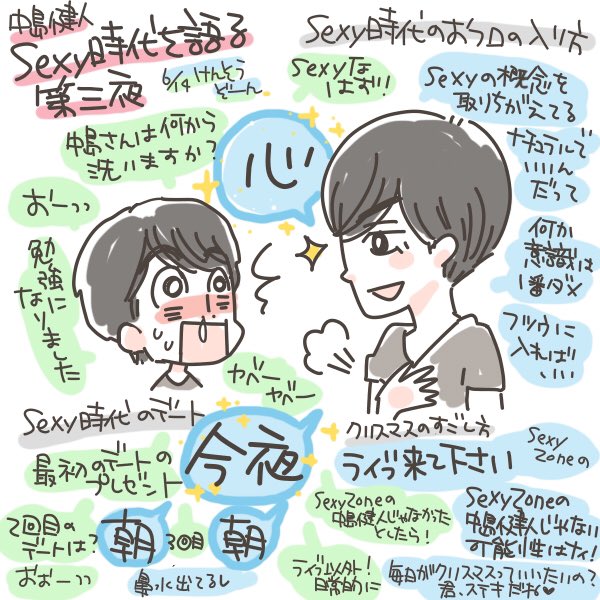 中島健人
Sexy時代を語る
第三夜
6/19 けんそう
ぞーん
Sexy時代のおフロの入り方
Sexyな
はず!!
Sexyの概念を
取りちがえてる
中島さんは何から
洗いますか?
心
ナチュラルで
いいん
だって
おーっっ
何か
意識は
1番ダメ
勉強に
なりました
フツウに
入れば
いい
ヤベー
ヤベー
Sexy時代のデート
最初のデートの
プレゼント
今夜
2回目の
デートは?
朝
3回目
朝
おおーっっ
鼻水出てるし
クリスマスのすごし方
Sexy
Zoneの
ライブ来て下さい
SexyZoneの
中島健人じゃなかった
としたら!
SexyZoneの
中島健人じゃない
可能性はない!
ライブ以外!
日常的に
毎日がクリスマスっていいたいの?
君、ステキだね♥